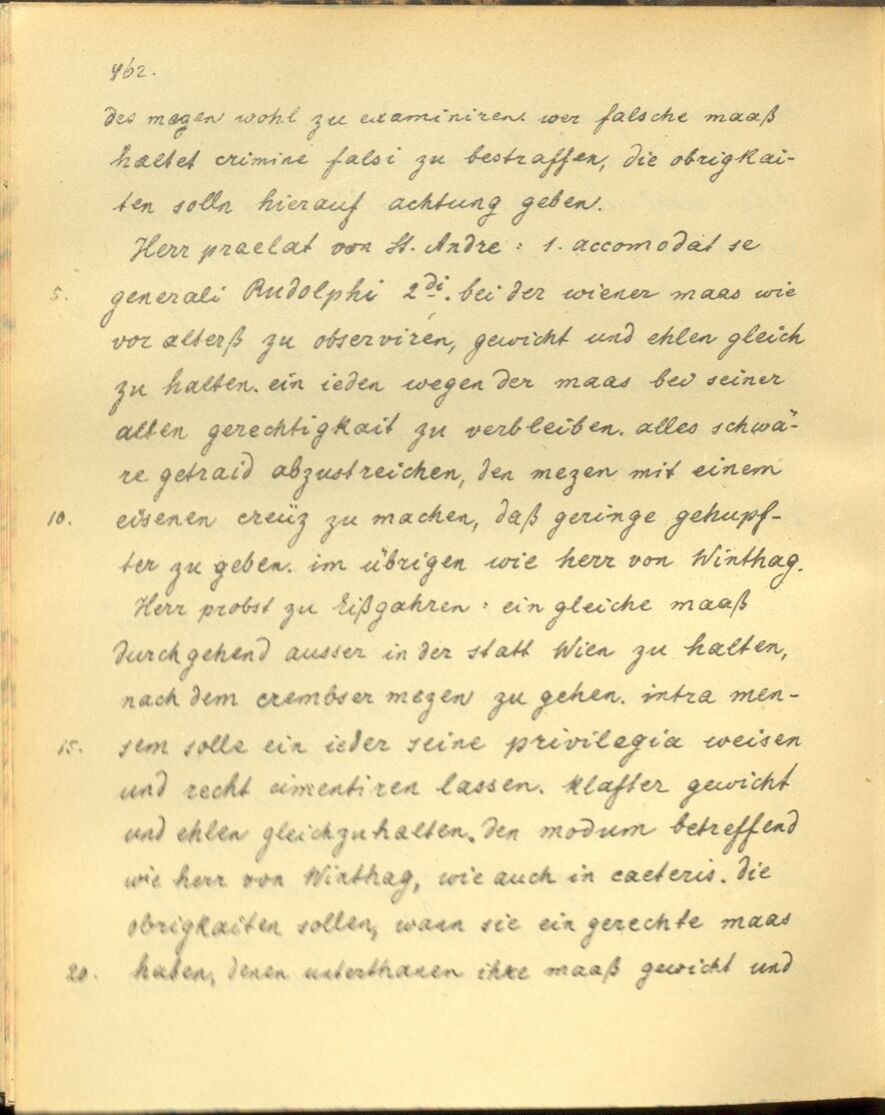 462.
des mezen wohl zu examiniren. wer falsche maaß
haltet crimine falsi zu bestraffen, die obrigkai-
ten solln hierauf achtung geben.
Herr praelat von St. Andre : 1. accomodat se
5. generali Rudolphi 2di. bei der wiener maas wie
vor alterß zu observiren, gewicht und ehlen gleich
zu halten. ein ieden wegen der maas bei seiner
alten gerechtigkait zu verbleiben. alles schwä-
re getraid abzustreichen, den mezen mit einem
10. eisenen creüz zu machen, daß geringe gehupf-
ter zu geben. im übrigen wie herr von Winthag.
Herr probst zu Eißgahren : ein gleiche maaß
durchgehend ausser in der statt Wien zu halten,
nach dem crembser mezen zu gehen. intra men-
15. sem solle ein ieder seine privilegia weisen
und recht cimentiren lassen. Klafter gewicht
und ehlen gleichzuhalten. den modum betreffend
wie herr von Winthag, wie auch in caeteris. die
obrigkaiten sollen, wann sie ein gerechte maas
20. haben, denen unterthanen ihre maaß gewicht und